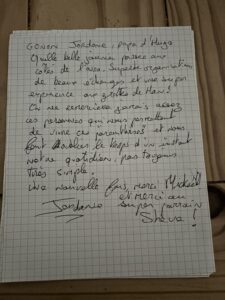 GONON Jordane, papa d'Hugo
Quelle belle journée passée aux
côtés de l'asso. Superbe organisation
de beaux échanges et une super
expérience aux grottes de Han !
On ne remerciera jamais assez
ces personnes qui nous permettent
de vivre ces parenthèses et nous
font oublier le temps d'un instant
notre quotidien, pas toujours
très simple.
Une nouvelle fois, merci
et merci au
Jordane super parrain
Sheva !